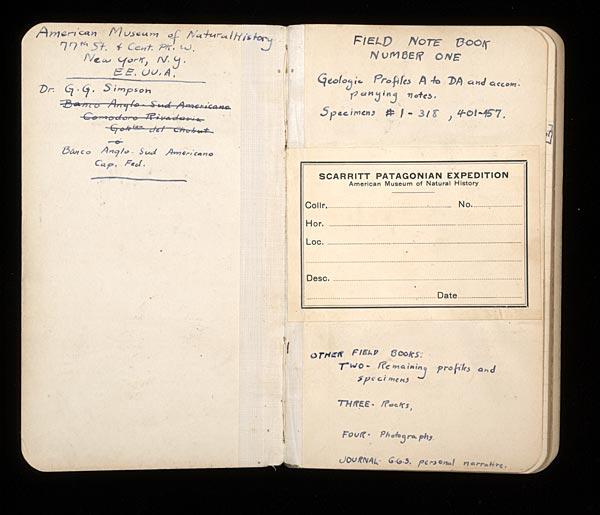 American Museum of Natural History
77th St. & Cent. Pk. W.
New York, N.Y.
EE. UU. A.
Dr. G. G. Simpson
Banco Anglo-Sud Americano
Comodoro Rivadavia
Gob. del Chubut
Banco Anglo-Sud Americano
Cap. Fed.
FIELD NOTE BOOK
NUMBER ONE
Geologic Profiles A to DA and accom-
panying notes.
Specimens # 1 - 318 , 401-457.
SCARRITT PATAGONIAN EXPEDITION
American Museum of Natural History
Collr. No.
Hor.
Loc.
Desc.
Date
OTHER FIELD BOOKS:
TWO - Remaining profiles and
specimens
THREE - Rocks,
FOUR - Photographs
JOURNAL - G.G.S. personal narrative.